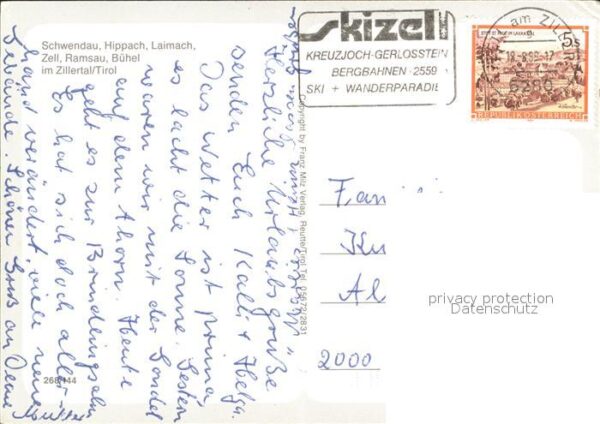 Schwendau, Hippach, Laimach,
Zell, Ramsau, Bühel
im Zillertal/Tirol
Herzliche Urlaubsgrüße
senden Euch Kalli + Helga.
Das Wetter ist prima,
es lacht die Sonne. Gestern
waren wir mit der Gondel
auf dem Ahorn. Heute
geht es zur
Es hat sich doch aller-
hand verändert, viele neue
Gebäude. Schönen Gruß an Deine
Mutter
268/144
Copyright by Franz Milz Verlag, Reutte/Tirol Tel. 05672/2831
skizell
KREUZJOCH-GERLOSSTEIN
BERGBAHNEN · 2559
SKI + WANDERPARADIE
am ZILLER
6280
5 S
REPUBLIK ÖSTERREICH
Fam
Ku
Al
2000
privacy protection
Datenschutz